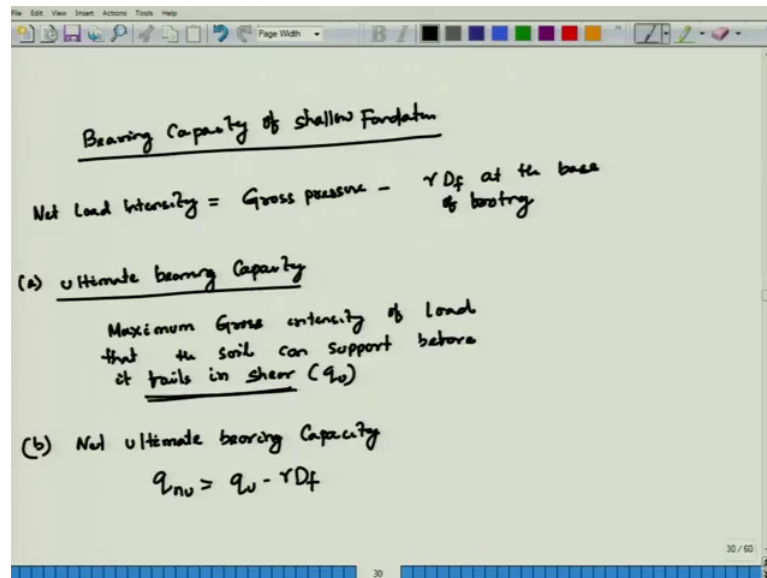 File Edit View Insert Actions Tools Help
Page Width B I
Bearing Capacity of Shallow Foundation
Net Load Intensity = Gross pressure - γDf at the base
of footing
(a) Ultimate bearing Capacity
Maximum Gross intensity of Load
that the soil can support before
it fails in shear (qu)
(b) Net ultimate bearing Capacity
qnu = qu - γDf
30 / 60
30